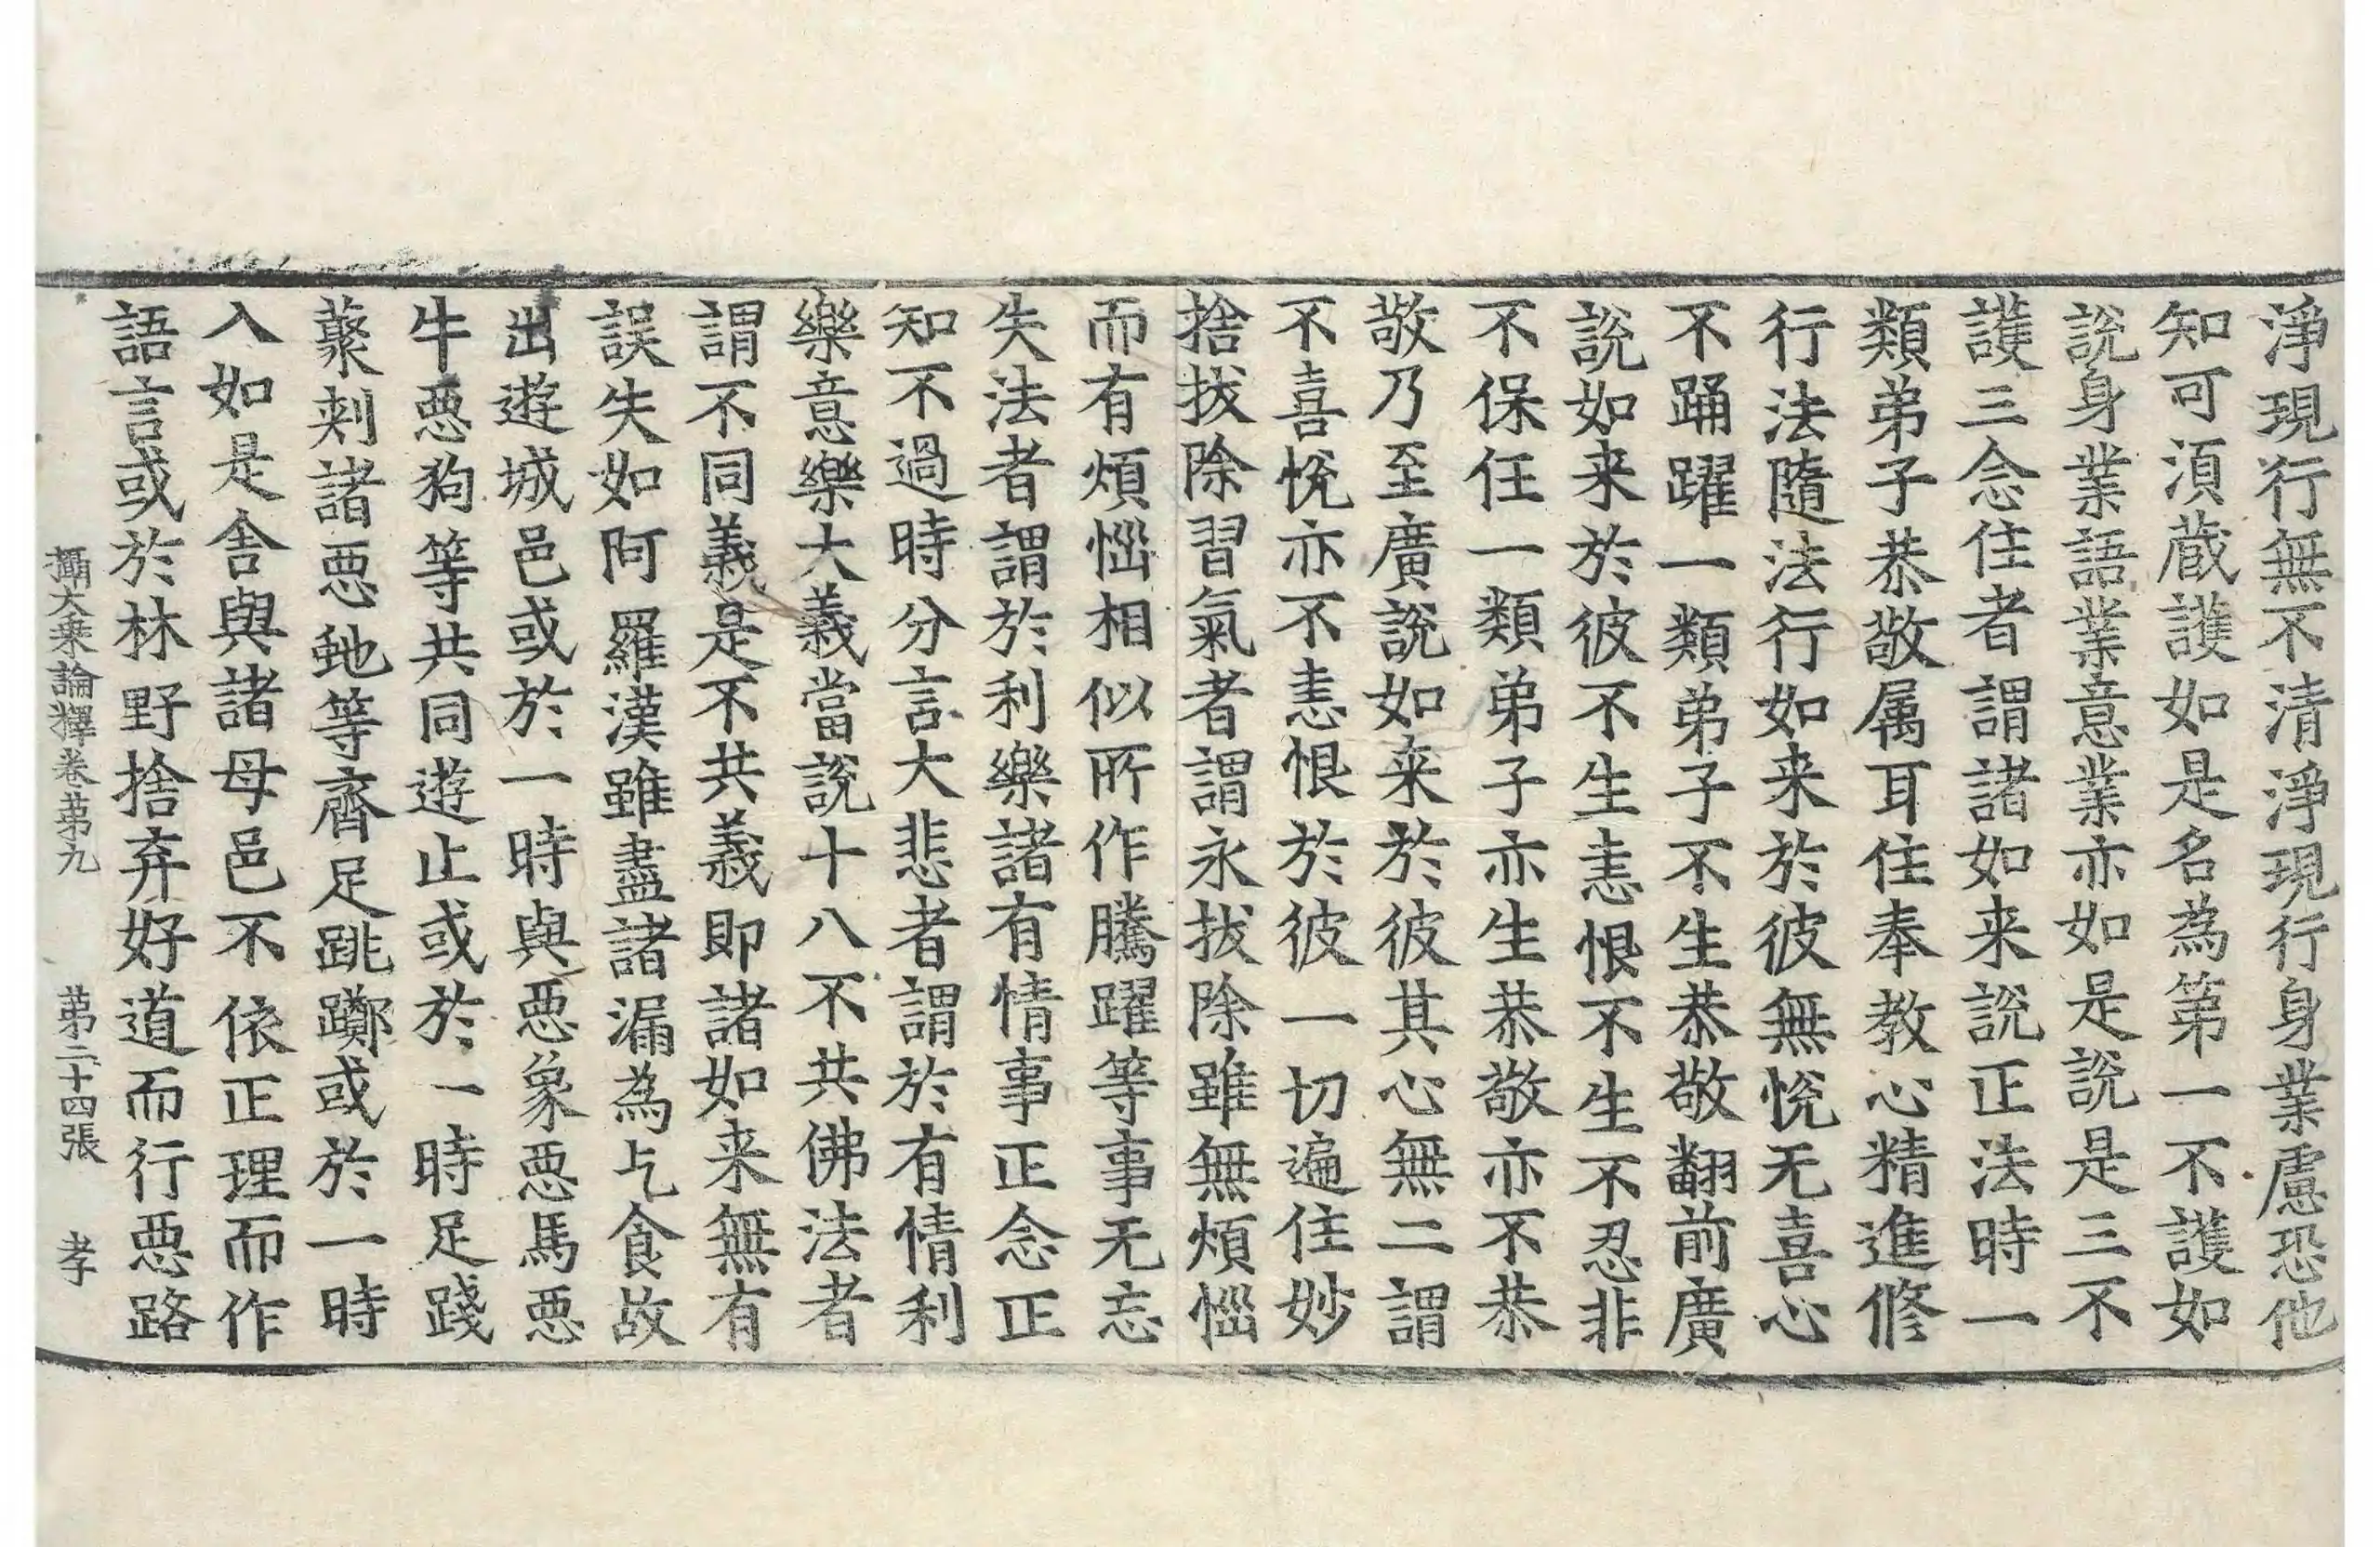 淨現行無不清淨現行身業慮恐他
知可湏蔵護如是名為第一不護如
說身業語業意業亦如是說是三不
護三念住者謂諸如来說正法時一
類弟子恭敬属耳住奉教心精進修
行法隨法行如来於彼無恱无喜心
不踊躍一類弟子不生恭敬翻前廣
說如来於彼不生恚恨不生不忍非
不保任一類弟子亦生恭敬亦不恭
敬乃至廣說如来於彼其心無二謂
不喜恱亦不恚恨於彼一切遍住妙
捨拔除習氣者謂永拔除雖無煩惱
而有煩惱相似所作騰躍等事无忘
失法者謂於利樂諸有情事正念正
知不過時分言大悲者謂於有情利
樂意樂大義當說十八不共佛法者
謂不同義是不共義即諸如来無有
誤失如阿羅漢雖盡諸漏為乞食故
出遊城邑或於一時與惡象惡馬惡
牛惡狗等共同遊止或於一時足踐
藂刾諸惡虵等齊足跳躑或於一時
入如是舍與諸母邑不依正理而作
語言或於林野捨弃好道而行惡路
攝大乘論釋卷苐九　苐二十四張　孝